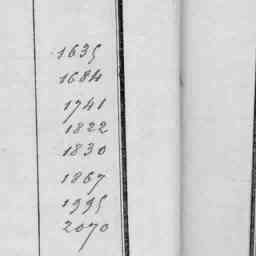 1635
1684
1741
1822
1830
1867
1995
2070